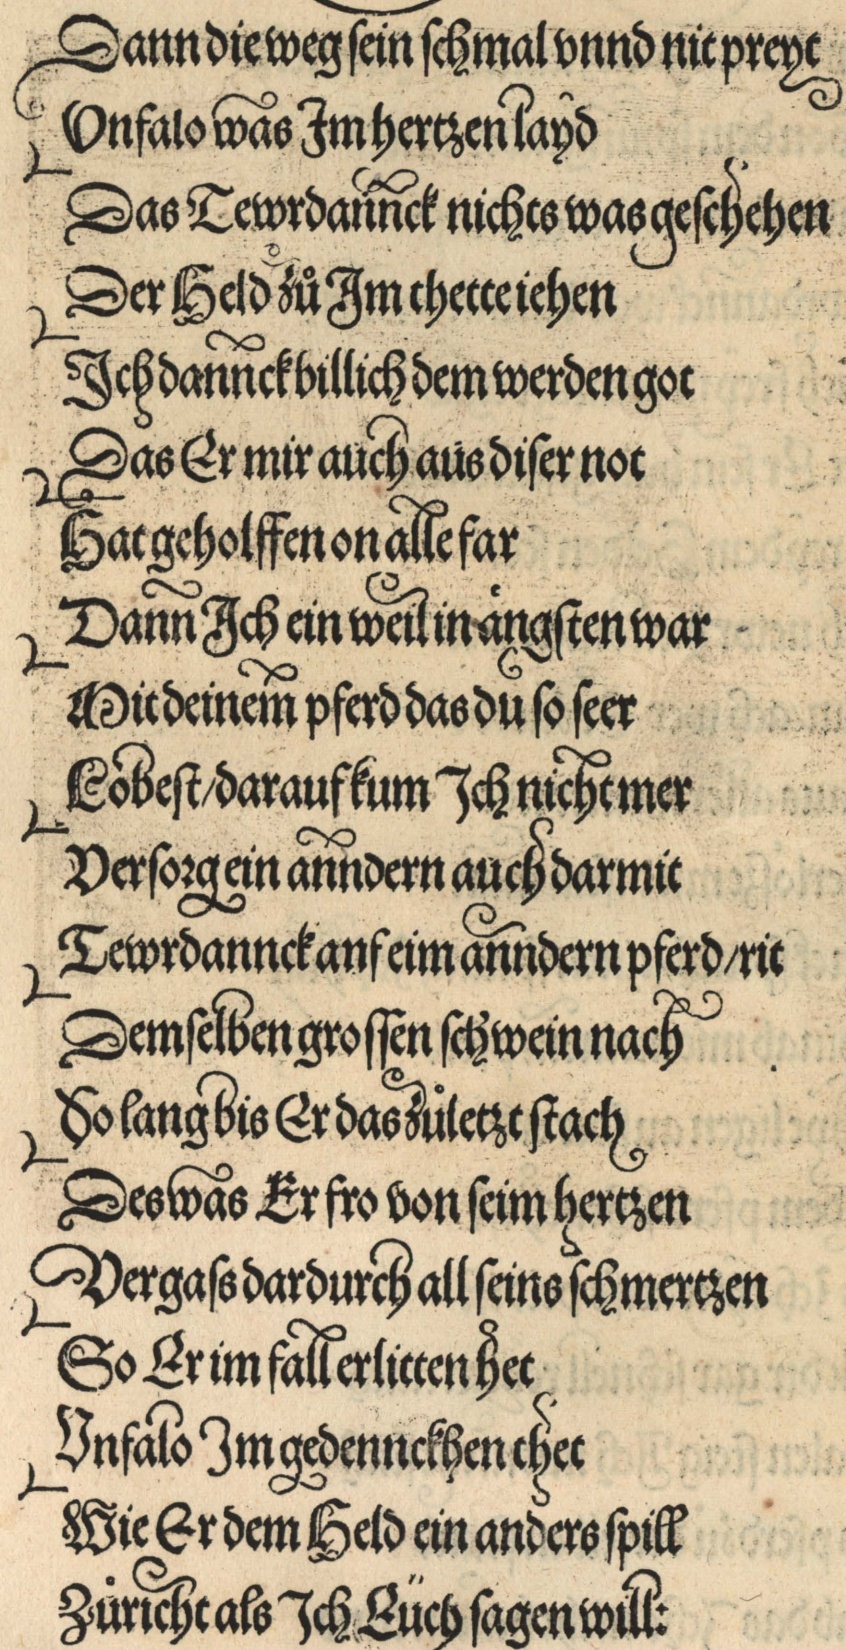 Dann die weg sein schmal vnnd nit preyt
Vnfalo was Im hertzen layd
Das Tewrdannck nichts was geschehen
Der Held zů Im thette iehen
Ich dannck billich dem werden got
Das Er mir auch aus diser not
Hat geholffen on alle far
Dann Ich ein weil in ängsten war
Mit deinem pferd das du so seer
Lobest/darauf kum Ich nicht mer
Versorg ein anndern auch darmit
Tewrdannck anf eim anndern pferd/rit
Demselben grossen schwein nach
So lang bis Er das zůletzt stach
Des was Er fro von seim hertzen
Vergass dardurch all seins schmertzen
So Er im fall erlitten het
Vnfalo Im gedennckhen thet
Wie Er dem Held ein anders spill
Zůricht als Ich Eüch sagen will: